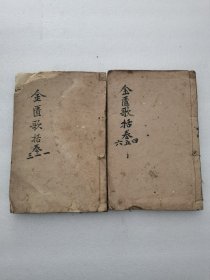 金匱歌括卷一二三
金匱歌括卷四五六